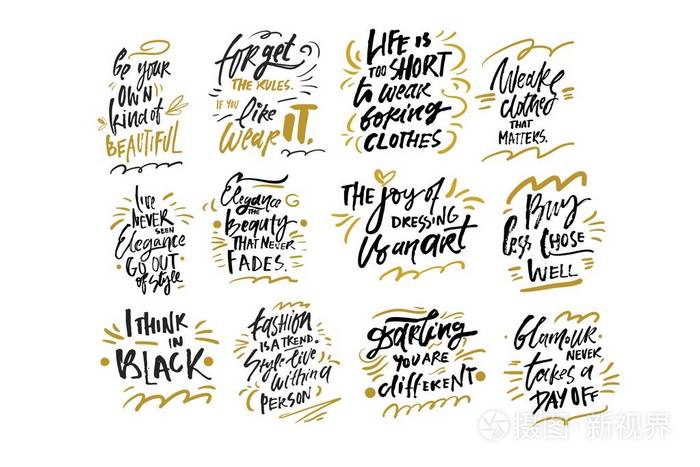 Be your
own
kind of
BEAUTIFUL
forget
THE RULES.
IF YOU
like
wear IT.
LIFE IS
TOO SHORT
to wear
boking
CLOTHES
Weake
clothed
THAT
MATTERS.
I've
NEVER
SEEN
Elegance
GO OUT
of style
Elegance
THE
Beauty
THAT NEVER
FADES.
THE joy of
DRESSING
Is an ART
Buy
less Chose
WELL
I THINK
IN
BLACK
fashion
IS A TREND.
Style live
within a
PERSON
Darling
YOU ARE
different
Glamour
NEVER
takes a
DAY OFF
摄图·新视界